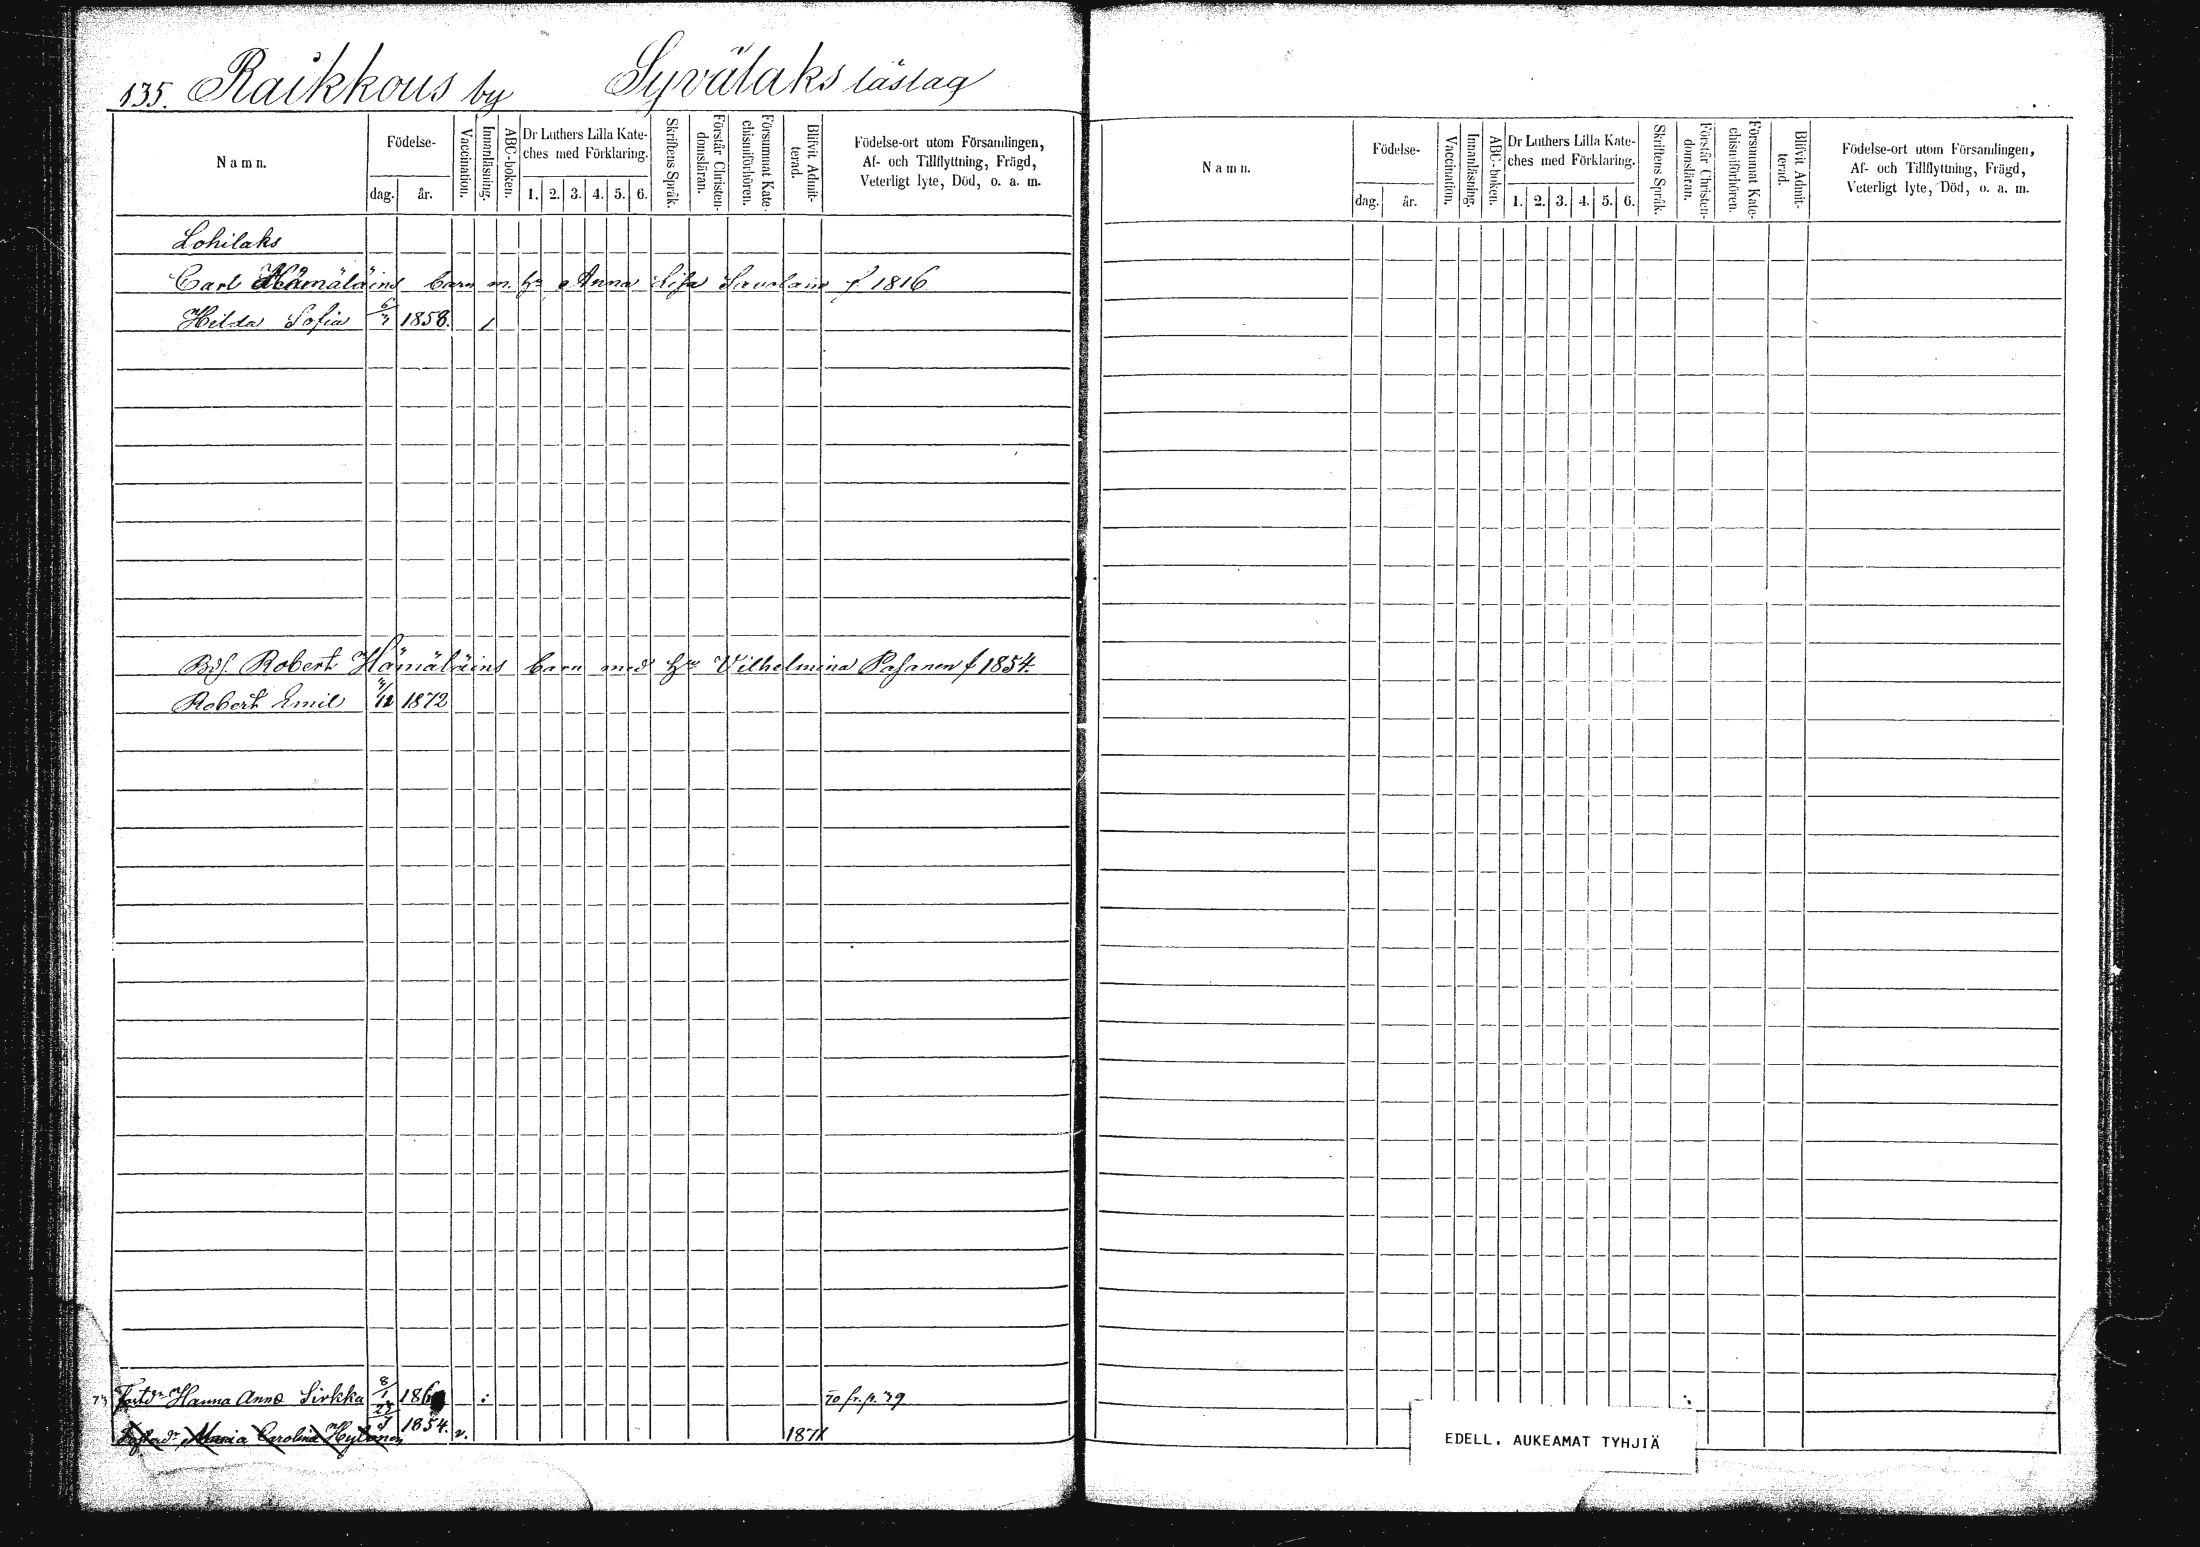 135. Raikkous by Syvälaks läslag
Namn.
Födelse-
dag. år.
Vaccination.
Innanläsning.
ABC-boken.
Dr Luthers Lilla Kate-
ches med Förklaring.
1. 2. 3. 4. 5. 6.
Skriftens Språk.
Förstår Christen-
domsläran.
Försummat Kate-
chismiförhören.
Blifvit Admit-
terad.
Födelse-ort utom Församlingen,
Af- och Tillflyttning, Frägd,
Veterligt lyte, Död, o. a. m.
Lohilaks
Carl Hämäläins barn m. hu Anna Lisa Savolain f 1816
Hilda Sofia 6/3 1858. /
Robert Hämäläins barn med hu Vilhelmina Pasanen f 1854.
Robert Emil 3/12 1872
73 Hanna Anna Sirkka 8/1 186 70 fr. p. 39
Maria Carolina Hyvönen 1854. v. 1871
Namn.
Födelse-
dag. år.
Vaccination.
Innanläsning.
ABC-boken.
Dr Luthers Lilla Kate-
ches med Förklaring.
1. 2. 3. 4. 5. 6.
Skriftens Språk.
Förstår Christen-
domsläran.
Försummat Kate-
chismiförhören.
Blifvit Admit-
terad.
Födelse-ort utom Församlingen,
Af- och Tillflyttning, Frägd,
Veterligt lyte, Död, o. a. m.
EDELL. AUKEAMAT TYHJIÄ